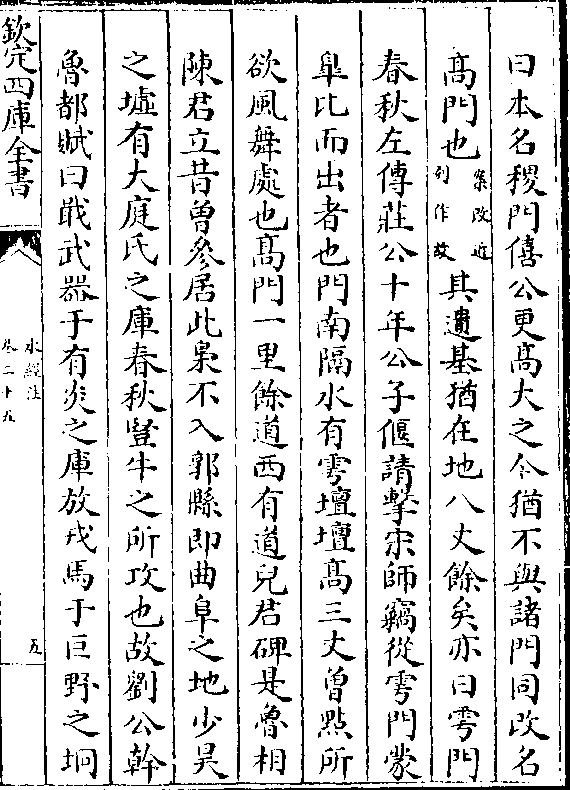 曰本名稷門僖公更髙大之今猶不與諸門同改名
髙門也案改近刻作故其遺基猶在地八丈餘矣亦曰雩門
春秋左傳莊公十年公子偃請擊宋師竊從雩門蒙
臯比而出者也門南隔水有雩壇壇髙三丈曾㸃所
欲風舞處也髙門一里餘道西有道兒君碑是魯相
陳君立昔曾參居此梟不入郭縣即曲阜之地少昊
之墟有大庭氏之庫春秋豎牛之所攻也故劉公幹
魯都賦曰戢武器于有炎之庫放戎馬于巨野之坰
欽定四庫全書
水經注
卷二十五
五